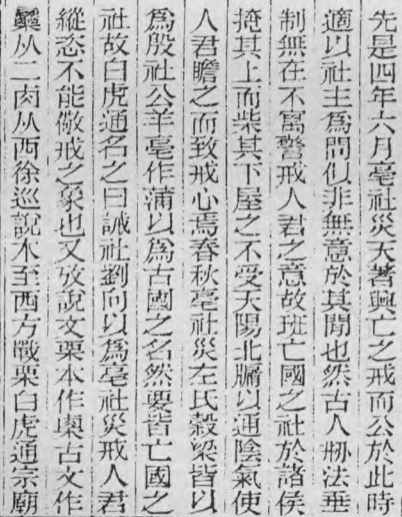 先是四年六月亳社災天著興亡之戒而公於此時
適以社主爲問似非無意於其間也然古人刱法垂
制無在不寓警戒人君之意故班亡國之社於諸侯
掩其上而柴其下屋之不受天陽北牖以通陰氣使
人君瞻之而致戒心焉春秋亳社災左氏穀梁皆以
爲殷社公羊亳作蒲以爲古國之名然要皆亡國之
社故白虎通名之曰誡社劉向以爲亳社災戒人君
縱恣不能儆戒之象也又攷說文栗本作㮚古文作
从二卤从西徐巡說木至西方戰栗白虎通宗廟